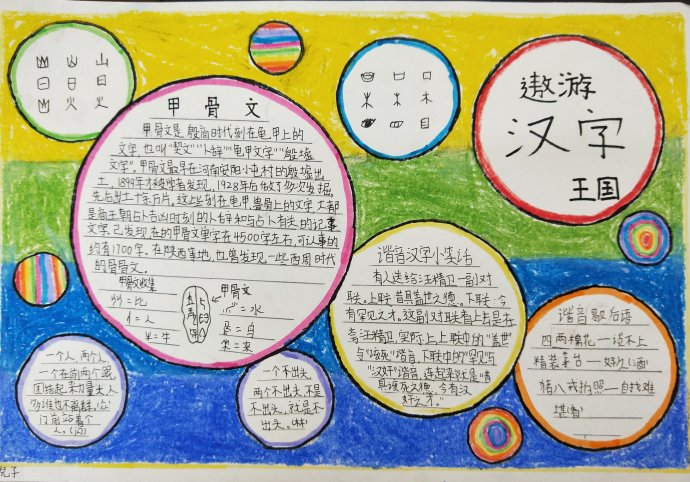 遨游
汉字
王国
山
日
火
口
木
目
甲骨文
甲骨文是殷商时代刻在龟甲上的
文字,也叫"契文""卜辞""龟甲文字""殷墟
文字"。甲骨文最早在河南安阳小屯村的殷墟出
土,1899年才被学者发现,1928年后做了多次发掘,
先后出土十余万片。这些刻在龟甲兽骨上的文字大都
是商王朝占卜吉凶时刻的卜辞和与占卜有关的记事
文字。已发现在的甲骨文单字在4500字左右,可认的
约有1700字。在陕西等地,也曾发现一些西周时代
的骨骨文.
甲骨文收集
=比
=人
=牛
甲骨文
=水
=白
=来
谐音汉字小笑话
有人送给汪精卫一副对
联。上联:昔具盖世之德。下联:今
有罕见之才。这副对联看上去是在
夸汪精卫,实际上,上联中的"盖世"
与"该死"谐音,下联中的"罕见"与
"汉奸"谐音,连起来就是"昔
具该死之德,今有汉
奸之才。"
谐音歇后语
四两棉花——谈不上
精装茅台——好久(酒)
猪八戒拍照——自找难
堪(看)
一个人,两个人
一个在前两个跟,
团结起来力量大,人
多谁也不
门前站着个
人。(闪)
一个不出头,
两个不出头,不是
不出头,就是不
出头。(林)